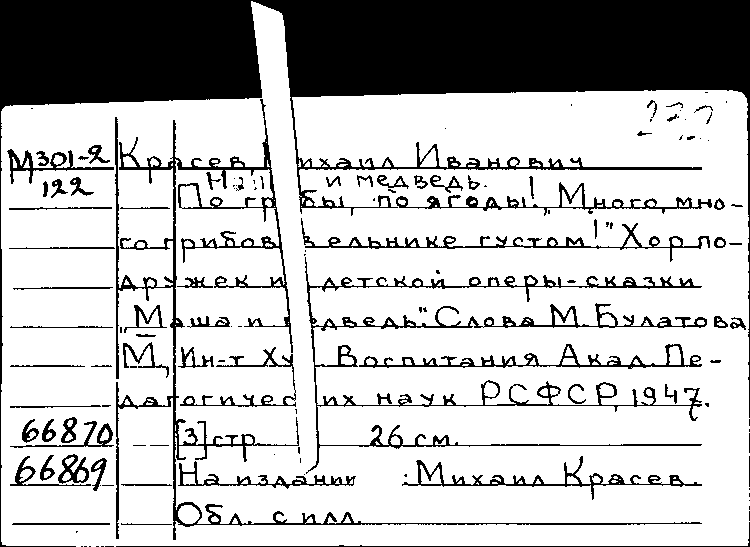 232
М301-2 Красев, Михаил Иванович
122 На и медведь.
По грибы, по ягоды! „Много, мно-
го грибов в ельнике густом!" Хор по-
дружек из детской оперы-сказки
„Маша и медведь". Слова М. Булатова
М., Ин-т Худ. Воспитания Акад. Пе-
дагогических наук РСФСР, 1947.
66870 [3] стр. 26 см.
66869 На издании : Михаил Красев.
Обл. с илл.